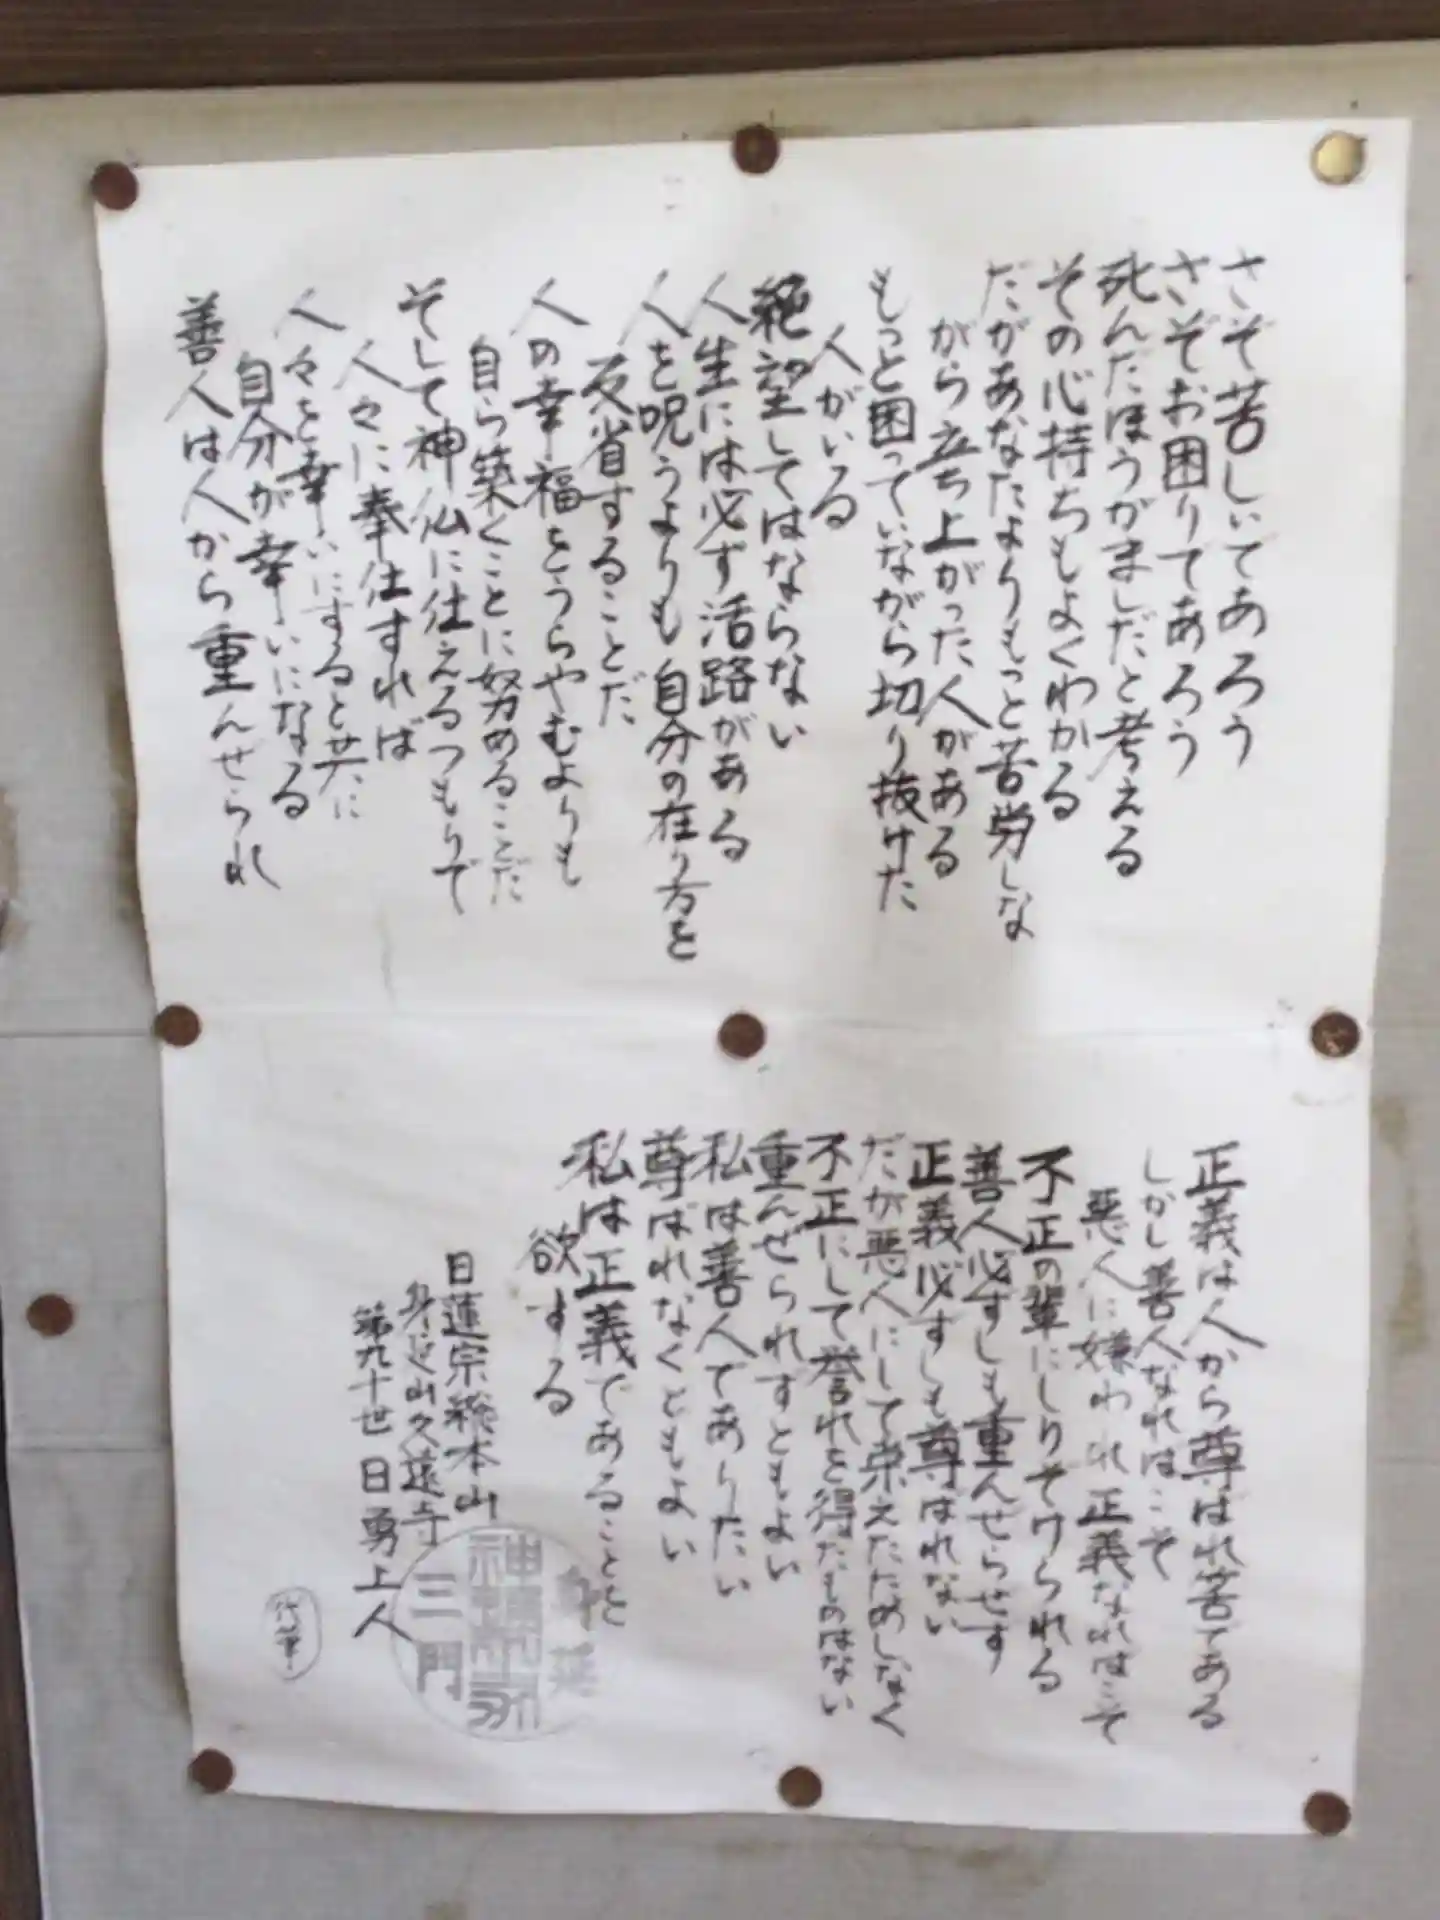 さぞ苦しいであろう
さぞお困りであろう
死んだほうがましだと考える
その心持ちもよくわかる
だがあなたよりもっと苦労しな
がら立ち上がった人がある
もっと困っていながら切り抜けた
人がいる
絶望してはならない
人生には必ず活路がある
人を呪うよりも自分の在り方を
反省することだ
人の幸福をうらやむよりも
自ら築くことに努めることだ
そして神仏に仕えるつもりで
人々に奉仕すれば
人々を幸いにすると共に
自分が幸いになる
善人は人から重んぜられ
正義は人から尊ばれ苦である
しかし善人なればこそ
悪人に嫌われ正義なればこそ
不正の輩にしりぞけられる
善人必ずしも重んぜらせす
正義必すしも尊ばれない
だが悪人にして栄えたためしなく
不正にして誉れを得たものはない
重んぜられすともよい
私は善人でありたい
尊ばれなくともよい
私は正義であることを
欲する
日蓮宗総本山
身延山久遠寺
第九十世 日勇上人
代筆
三門